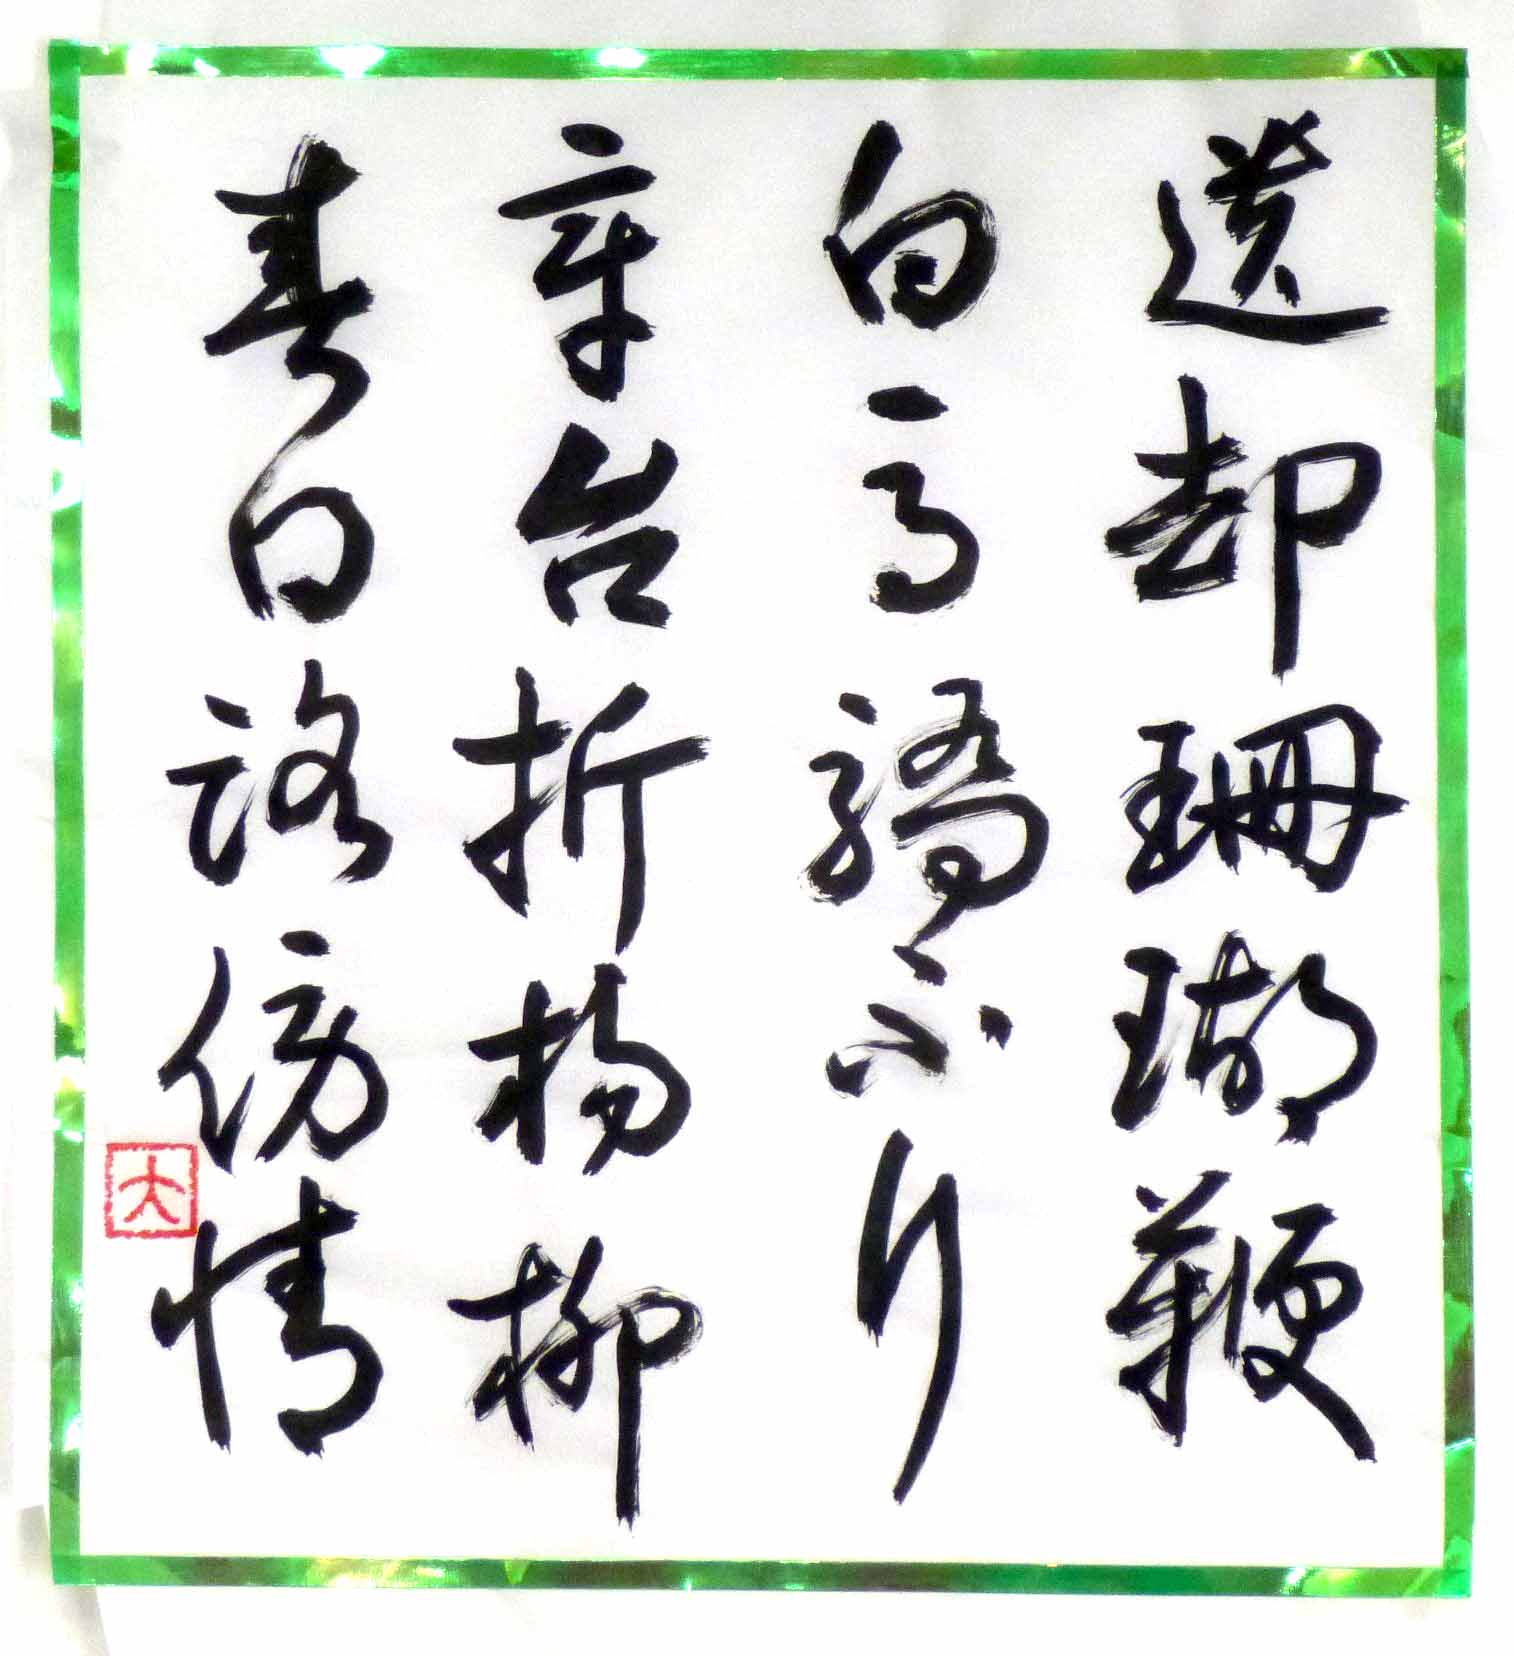 遺却珊瑚鞭
白馬驕不行
章台折楊柳
春日路傍情
大